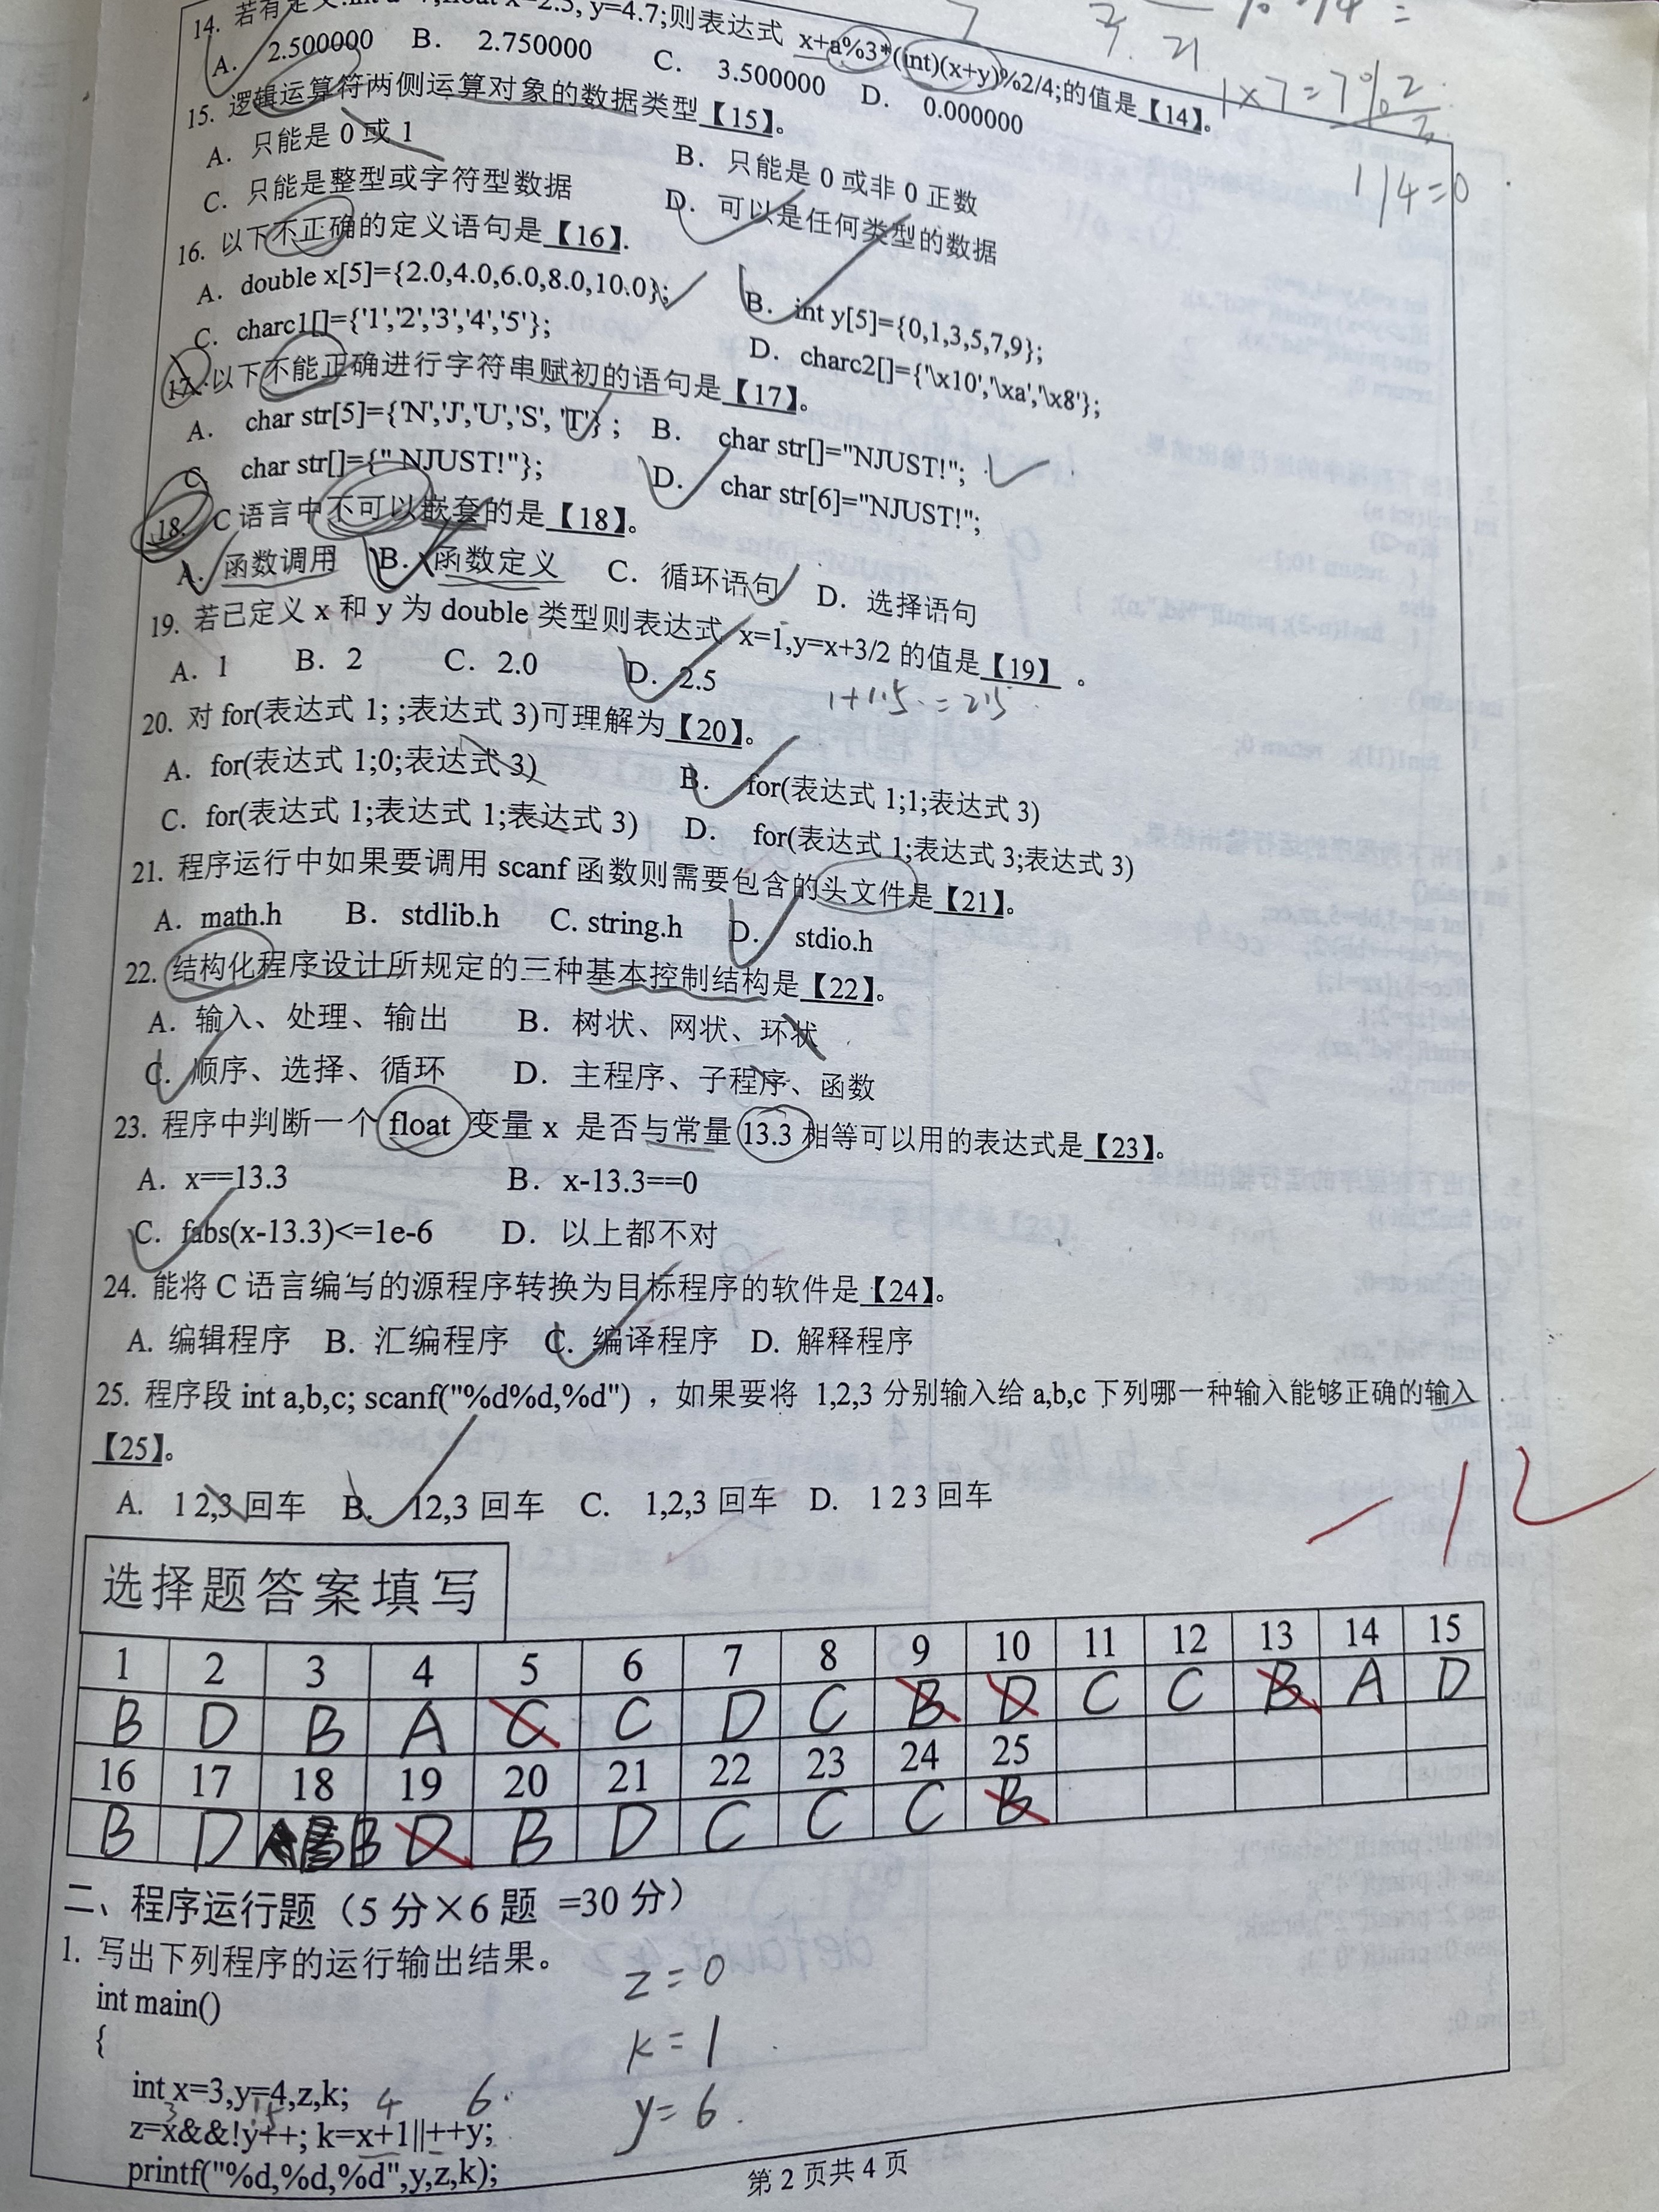 14. 若有定义:int a=7;float x=2.5, y=4.7;则表达式 x+a%3*(int)(x+y)%2/4;的值是【14】。
A. 2.500000 B. 2.750000 C. 3.500000 D. 0.000000
1×7=7%2
1/4=0
15. 逻辑运算符两侧运算对象的数据类型【15】。
A. 只能是 0 或 1 B. 只能是 0 或非 0 正数
C. 只能是整型或字符型数据 D. 可以是任何类型的数据
16. 以下不正确的定义语句是【16】.
A. double x[5]={2.0,4.0,6.0,8.0,10.0}; B. int y[5]={0,1,3,5,7,9};
C. charc1[]={'1','2','3','4','5'}; D. charc2[]={'\x10','\xa','\x8'};
17. 以下不能正确进行字符串赋初的语句是【17】。
A. char str[5]={'N','J','U','S','T'}; B. char str[]="NJUST!";
C. char str[]={" NJUST!"}; D. char str[6]="NJUST!";
18. C 语言中不可以嵌套的是【18】。
A. 函数调用 B. 函数定义 C. 循环语句 D. 选择语句
19. 若已定义 x 和 y 为 double 类型则表达式 x=1,y=x+3/2 的值是【19】 。
A. 1 B. 2 C. 2.0 D. 2.5
1+1.5=2.5
20. 对 for(表达式 1; ;表达式 3)可理解为【20】。
A. for(表达式 1;0;表达式 3) B. for(表达式 1;1;表达式 3)
C. for(表达式 1;表达式 1;表达式 3) D. for(表达式 1;表达式 3;表达式 3)
21. 程序运行中如果要调用 scanf 函数则需要包含的头文件是【21】。
A. math.h B. stdlib.h C. string.h D. stdio.h
22. 结构化程序设计所规定的三种基本控制结构是【22】。
A. 输入、处理、输出 B. 树状、网状、环状
C. 顺序、选择、循环 D. 主程序、子程序、函数
23. 程序中判断一个 float 变量 x 是否与常量 13.3 相等可以用的表达式是【23】。
A. x==13.3 B. x-13.3==0
C. fabs(x-13.3)<=1e-6 D. 以上都不对
24. 能将 C 语言编写的源程序转换为目标程序的软件是【24】。
A. 编辑程序 B. 汇编程序 C. 编译程序 D. 解释程序
25. 程序段 int a,b,c; scanf("%d%d,%d") ，如果要将 1,2,3 分别输入给 a,b,c 下列哪一种输入能够正确的输入
【25】。
A. 1 2,3 回车 B. 12,3 回车 C. 1,2,3 回车 D. 1 2 3 回车
-12
选择题答案填写
1 2 3 4 5 6 7 8 9 10 11 12 13 14 15
B D B A C C D C B D C C B A D
16 17 18 19 20 21 22 23 24 25
B D B D B D C C C B
二、程序运行题（5 分×6 题 =30 分）
1. 写出下列程序的运行输出结果。
z=0
int main()
{
k=1
int x=3,y=4,z,k; 4 6
y=6
z=x&&!y++; k=x+1||++y;
printf("%d,%d,%d",y,z,k);
第 2 页共 4 页